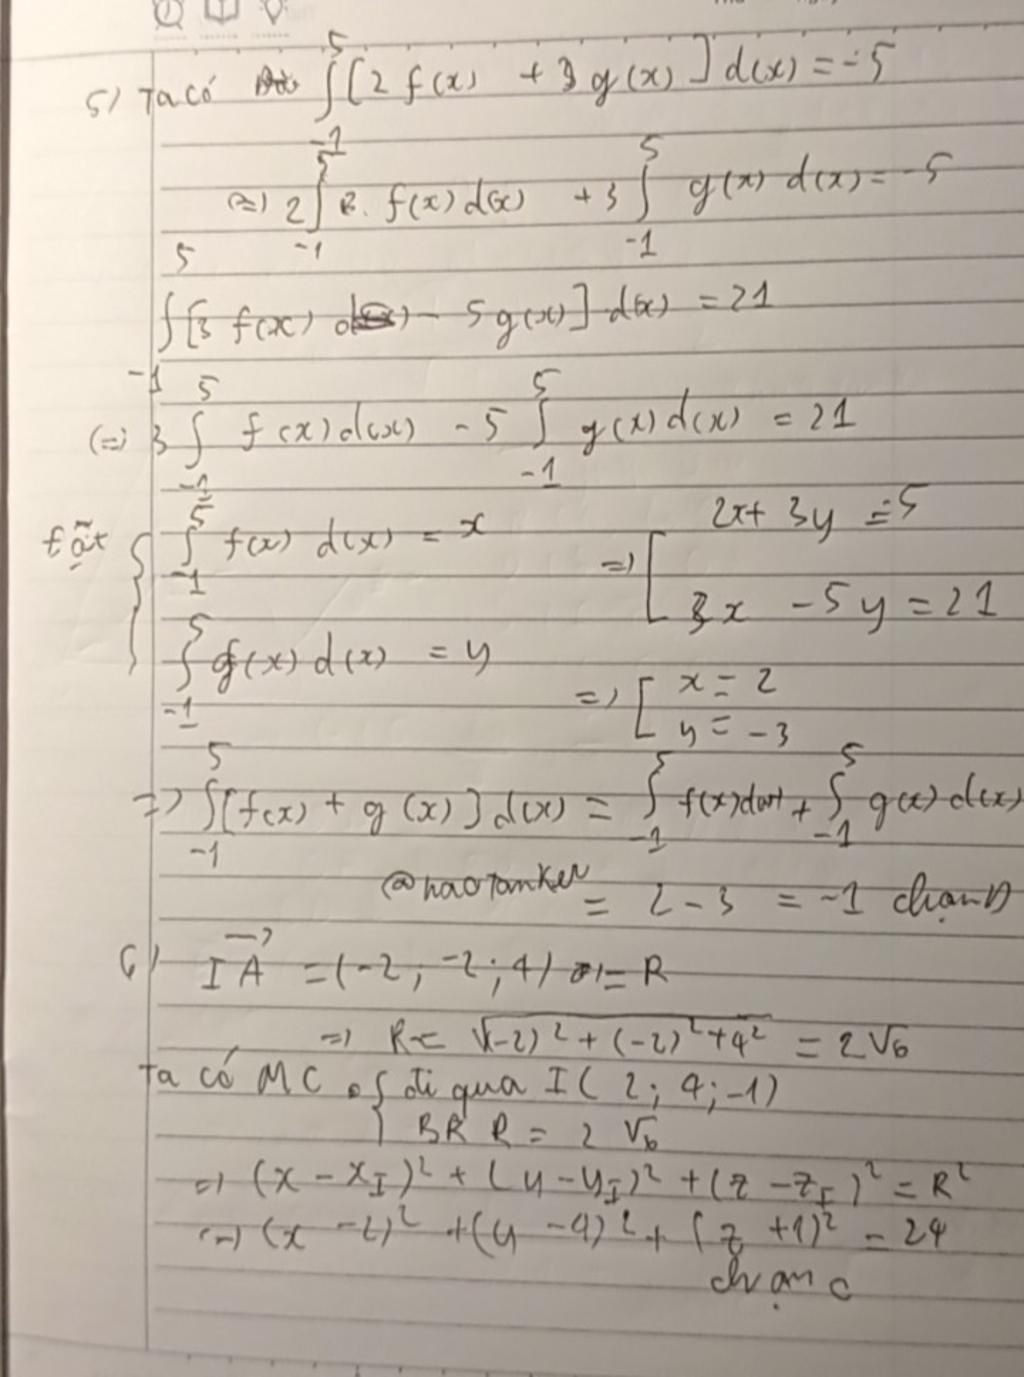 5) Ta có ∫_{-1}^{5} [2 f(x) + 3 g(x)] d(x) = -5
(=) 2 ∫_{-1}^{5} f(x) d(x) + 3 ∫_{-1}^{5} g(x) d(x) = -5
∫_{-1}^{5} [3 f(x) - 5 g(x)] d(x) = 21
(=) 3 ∫_{-1}^{5} f(x) d(x) - 5 ∫_{-1}^{5} g(x) d(x) = 21
đặt { ∫_{-1}^{5} f(x) d(x) = x
∫_{-1}^{5} g(x) d(x) = y
=) [ 2x + 3y = -5
3x - 5y = 21
=) [ x = 2
y = -3
=) ∫_{-1}^{5} [f(x) + g(x)] d(x) = ∫_{-1}^{5} f(x) d(x) + ∫_{-1}^{5} g(x) d(x)
@haotomker = 2 - 3 = -1 chọn D
6) →IA = (-2; -2; 4) = R
=) R = √(-2)² + (-2)² + 4² = 2√6
Ta có MC { đi qua I( 2; 4; -1)
BK R = 2√6
=) (x - x_I)² + (y - y_I)² + (z - z_I)² = R²
(=) (x - 2)² + (y - 4)² + (z + 1)² = 24
chọn C